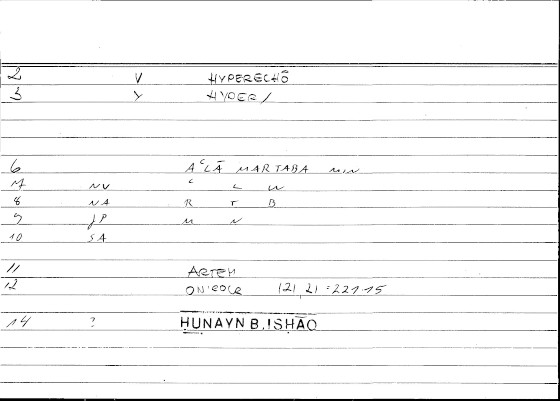 2 V HYPERECHŌ
3 Y HYPER /
6 AᶜLĀ MARTABA MIN
7 NV ᶜ L W
8 NA R T B
9 JP M N
10 SA
11 ARTEM
12 121, 21 = 221.15
14 ? ḤUNAYN B. ISḤĀQ